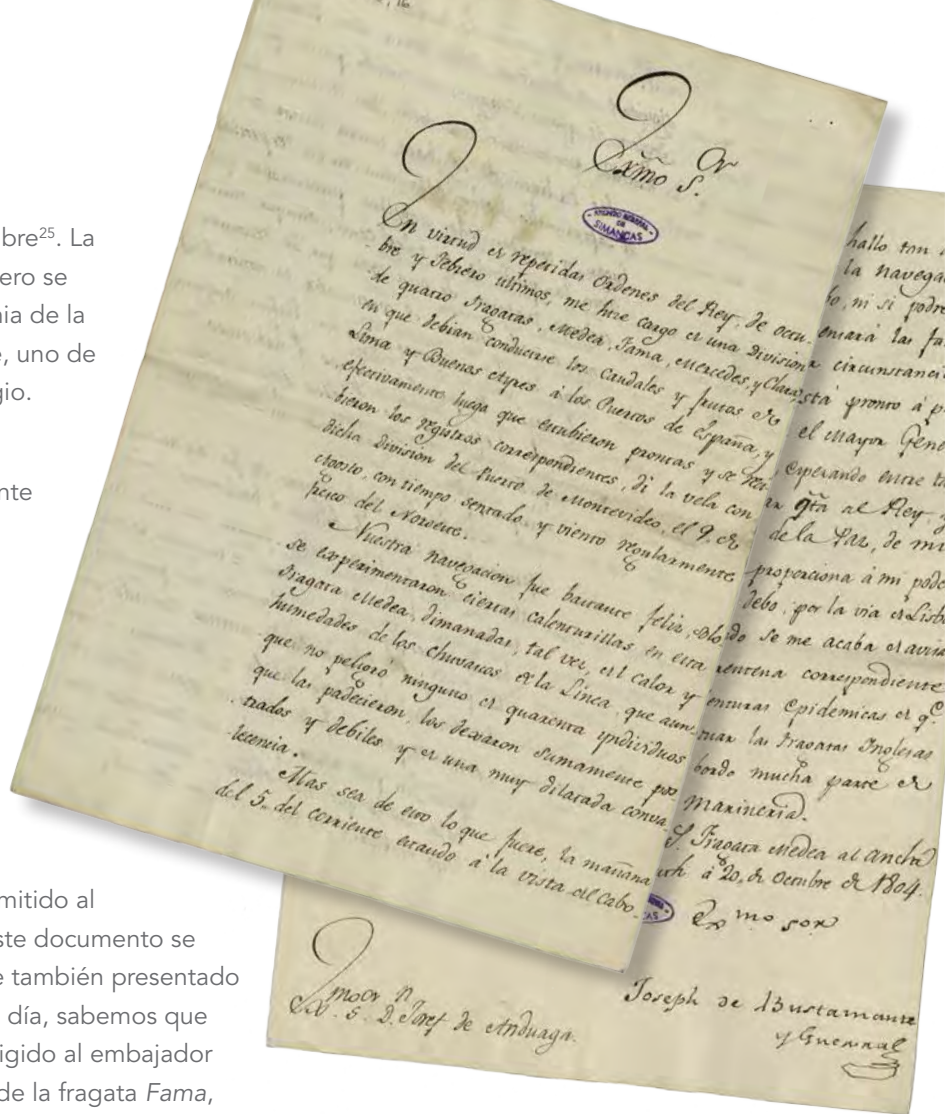 bre²⁵. La
ero se
nia de la
e, uno de
gio.
nte
mitido al
ste documento se
e también presentado
día, sabemos que
igido al embajador
de la fragata Fama,
16
Exmõ S.ᵒʳ
ARCHIVO GENERAL
DE
SIMANCAS
En virtud de repetidas Ordenes del Rey, de Octu-
bre y Febrero ultimos, me hize cargo de una Division
de quatro Fragatas, Medea, Fama, Mercedes, y Clara,
en que debian conducirse los Caudales y frutos de
Lima y Buenos Ayres à los Puertos de España, y
efectivamente luego que estubieron prontas y se reci-
bieron los registros correspondientes, di la vela con
dicha Division del Puerto de Montevideo, el 9. de
Agosto, con tiempo sentado y viento regularmente
fresco del Noroeste.
Nuestra navegacion fue bastante feliz, solo
se experimentaron ciertas calenturillas en esta
Fragata Medea, dimanadas, tal vez, del calor y
humedades de los chuvascos de la Linea, que aun-
que no peligró ninguno de quarenta yndividuos
que las padecieron, los dexaron sumamente pos-
trados y debiles y de una muy dilatada conva-
lecencia.
Mas sea de esto lo que fuere, la mañana
del 5. del corriente, estando à la vista del Cabo
hallo tan
la navega
ni si podre
las
circunstanci
está pronto à
el Mayor Gene
esperando entre
al Rey
de la Paz, de mi
proporciona à mi
debo, por la via de Lisb
se me acaba de avisa
correspondiente
Epidemicas de q.ᵉ
las Fragatas Ynglesas
bordo mucha parte de
Marineria.
Fragata Medea al ancla
à 20, de Octubre de 1804.
Exᵐᵒ Sor
Joseph de Bustamante
y Guerra
S. D. Josef de Anduaga.